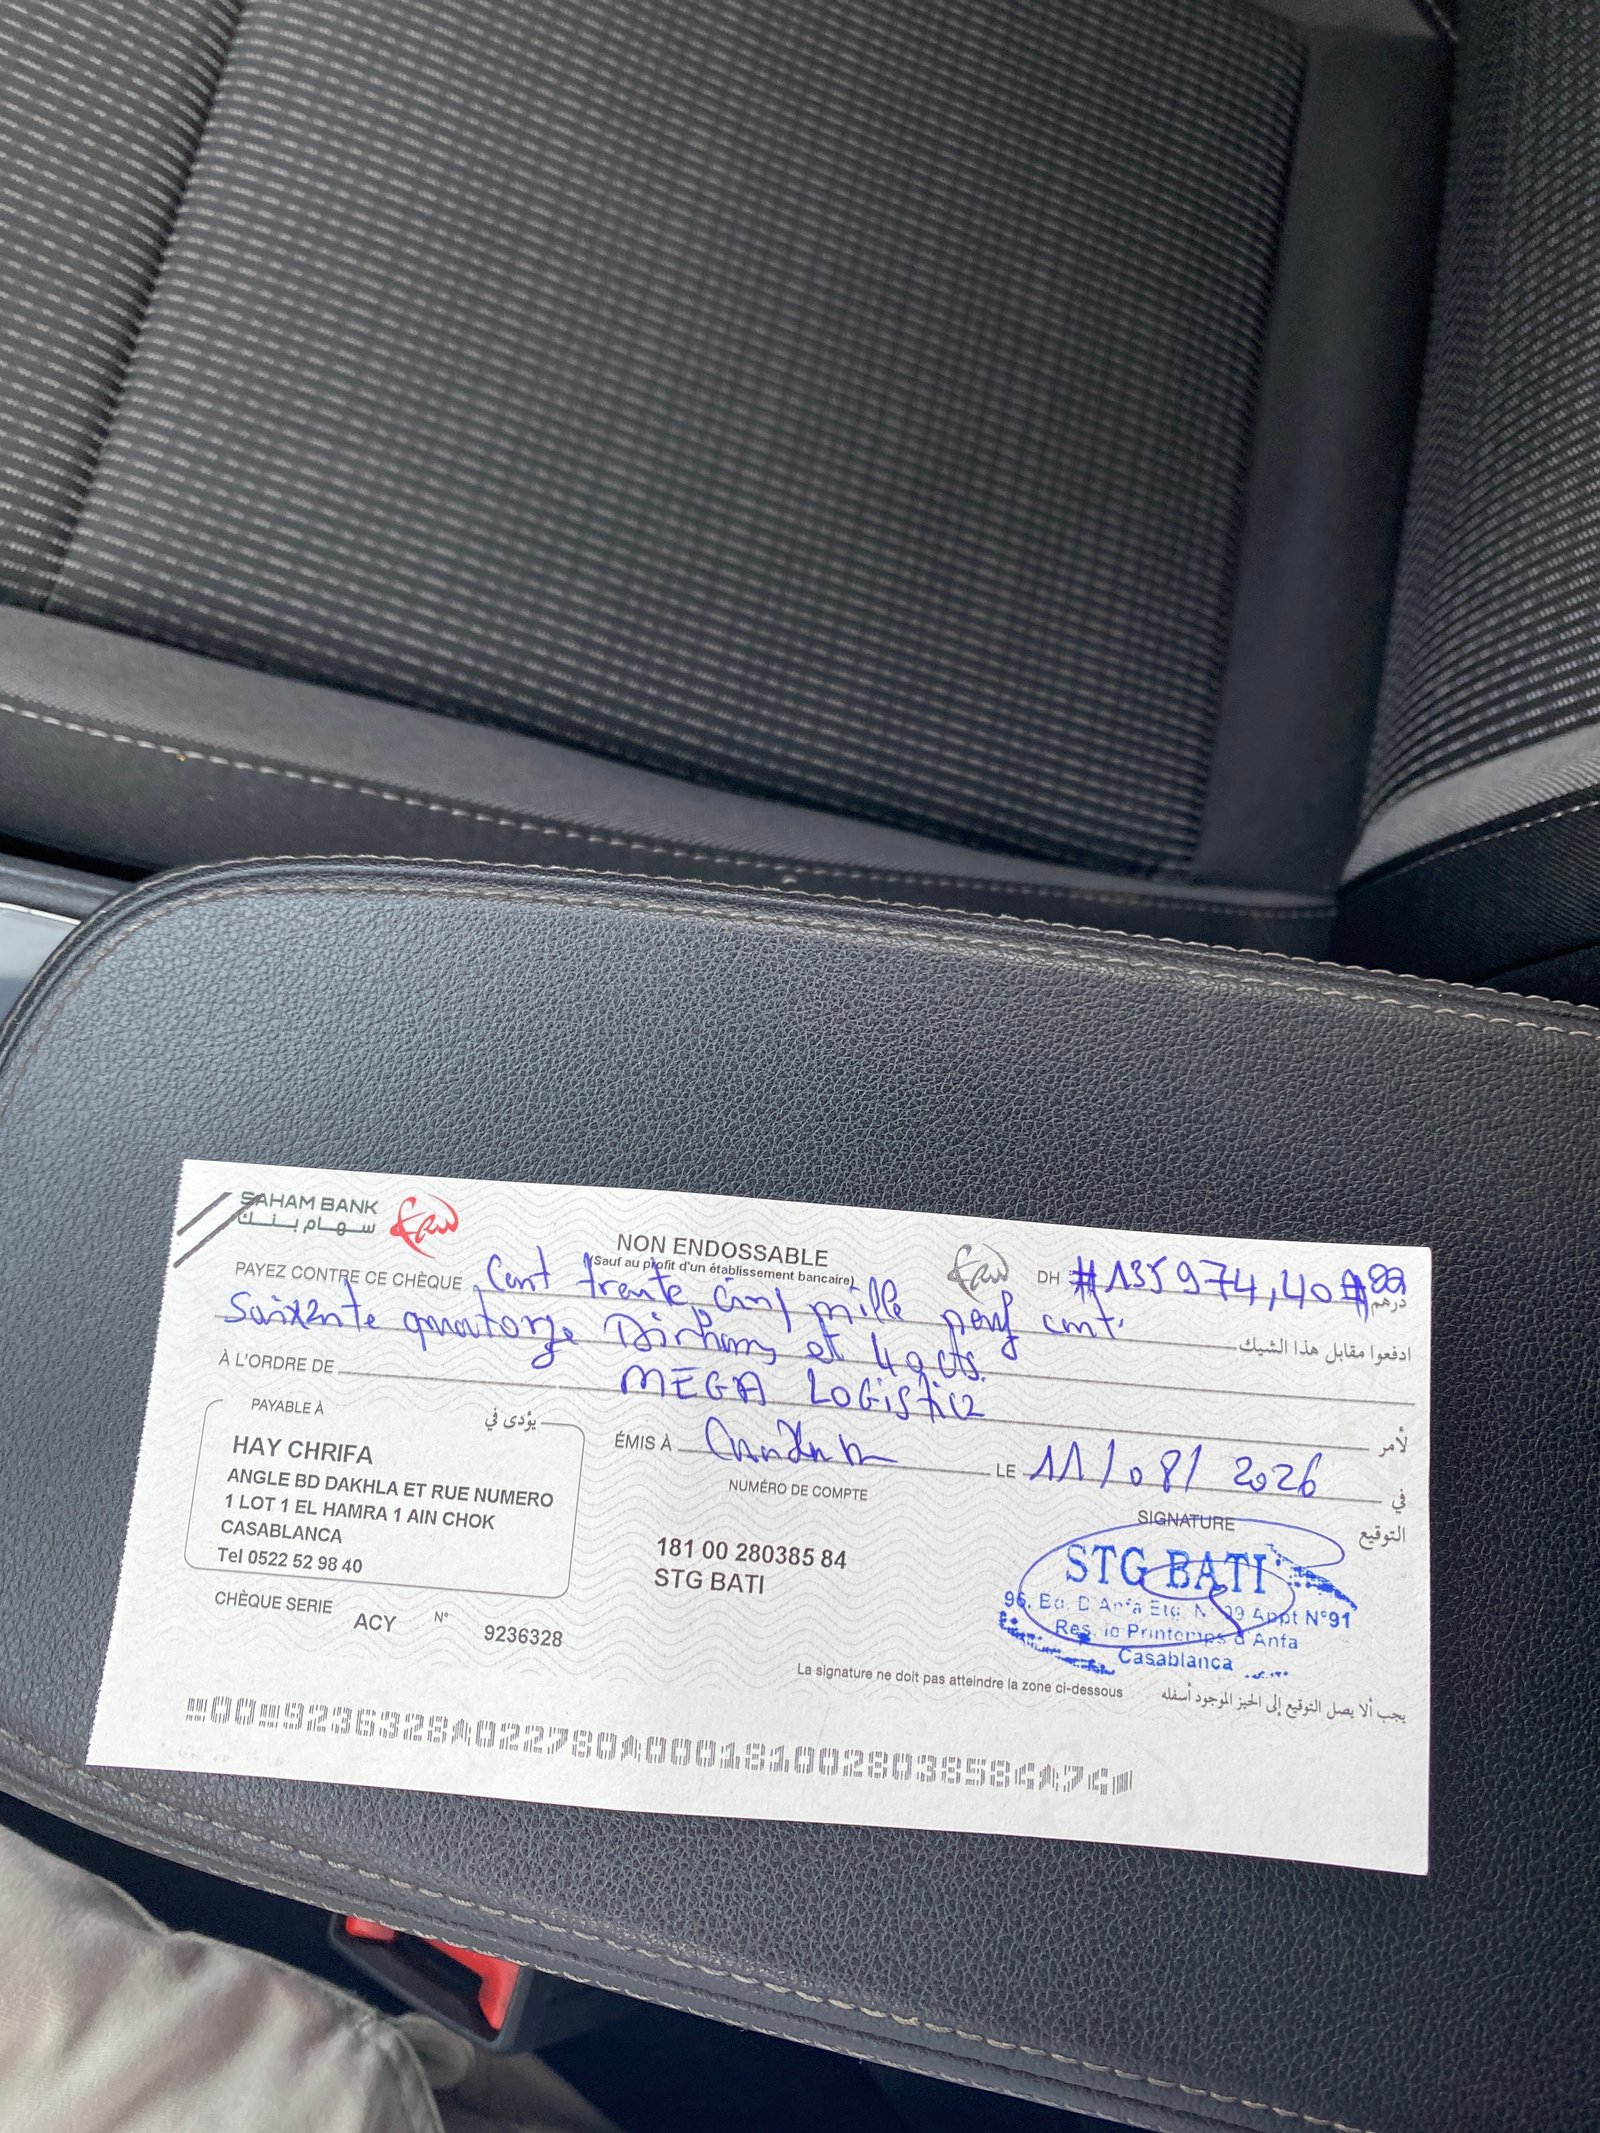 SAHAM BANK
سهام بنك
NON ENDOSSABLE
(Sauf au profit d'un établissement bancaire)
DH #135974,40# درهم
PAYEZ CONTRE CE CHÈQUE Cent trente cinq mille neuf cent
ادفعوا مقابل هذا الشيك
Soixante quatorze Dirhams et 40 cts.
À L'ORDRE DE MEGA LOGistiz لأمر
PAYABLE À يؤدى في
HAY CHRIFA
ANGLE BD DAKHLA ET RUE NUMERO
1 LOT 1 EL HAMRA 1 AIN CHOK
CASABLANCA
Tel 0522 52 98 40
ÉMIS À LE 11/08/2026 في
NUMÉRO DE COMPTE
181 00 280385 84
STG BATI
SIGNATURE التوقيع
STG BATI
96, Bd. D'Anfa Etg. N°09 Appt N°91
Res. le Printemps d'Anfa
Casablanca
CHÈQUE SERIE ACY N° 9236328
La signature ne doit pas atteindre la zone ci-dessous يجب ألا يصل التوقيع إلى الحيز الموجود أسفله
00 9236328A022780A0001810028038584A74